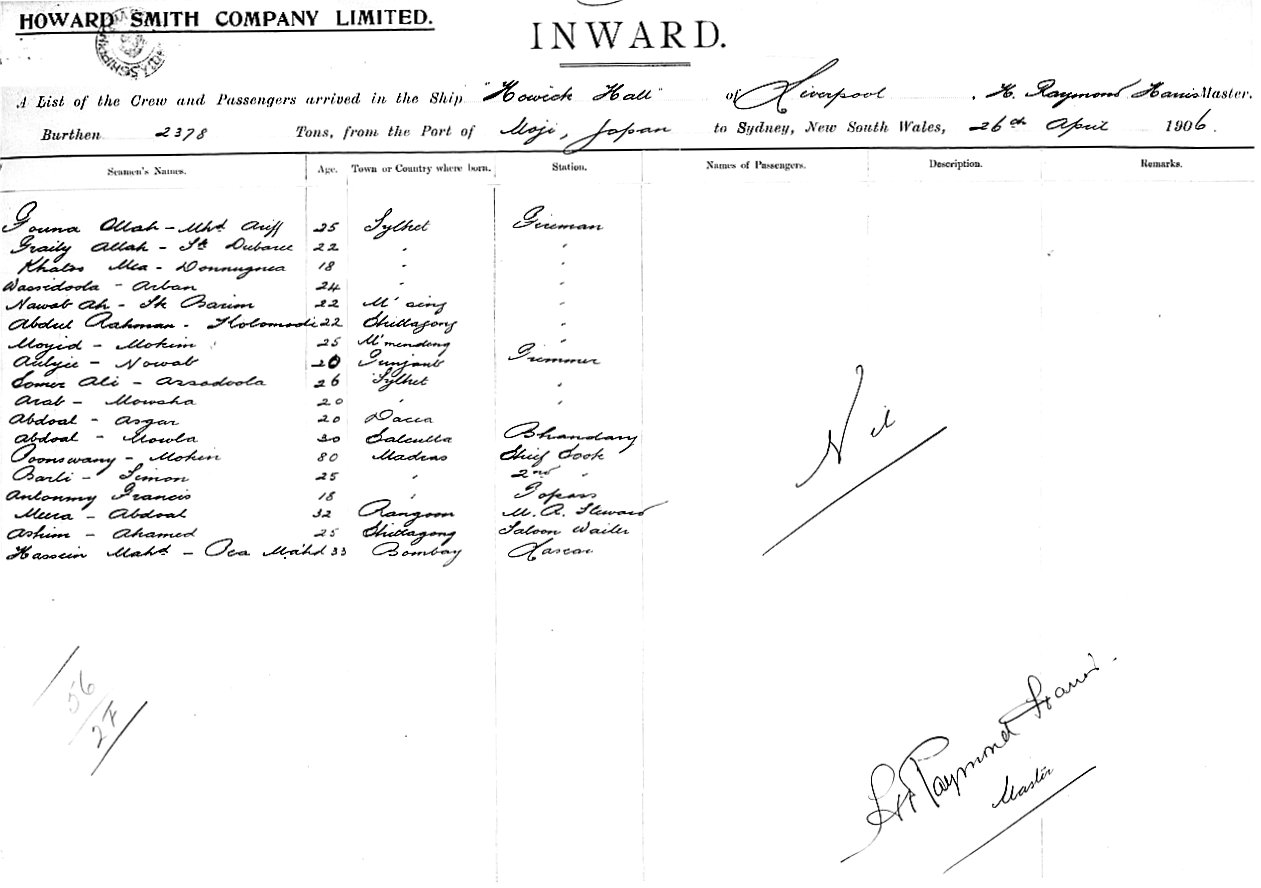 HOWARD SMITH COMPANY LIMITED.
INWARD.
A List of the Crew and Passengers arrived in the Ship "Howick Hall" of Liverpool, H. Raymond Harris Master.
Burthen 2378 Tons, from the Port of Moji, Japan to Sydney, New South Wales, 26th April 1906.
Seamen's Names. Age. Town or Country where born. Station. Names of Passengers. Description. Remarks.
Gouna Ollah - Mhd Ariff 25 Sylhet Fireman
Allah - Sk 22 " "
Mea - 18 " "
Wassidoola - Arban 24 " "
Nawab Ah - Sk Barim 22 M'sing "
Abdul Rahman - 22 Chittagong "
Moyid - Mokim 25 "
- Nowab 20 Trimmer
Somer Ali - Assadoola 26 Sylhet "
Arab - Mowsha 20 " "
Abdoal - Asgar 20 Dacca "
Abdoal - Mowla 30 Calcutta Bhandary
Poonswany - Moken 80 Madras Chief Cook
Barli - Simon 25 " 2nd "
Antonmy Francis 18 " Topass
Meera - Abdoal 32 Rangoon M. R. Steward
Ashim - Ahamed 25 Chittagong Saloon Waiter
Hassein Mahd - Oca Mahd 33 Bombay Lascar
Nil
56
27
H Raymond Harris
Master